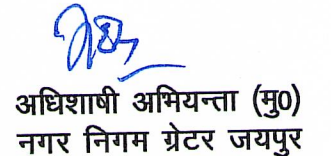 अधिशाषी अभियन्ता (मु0)
नगर निगम ग्रेटर जयपुर